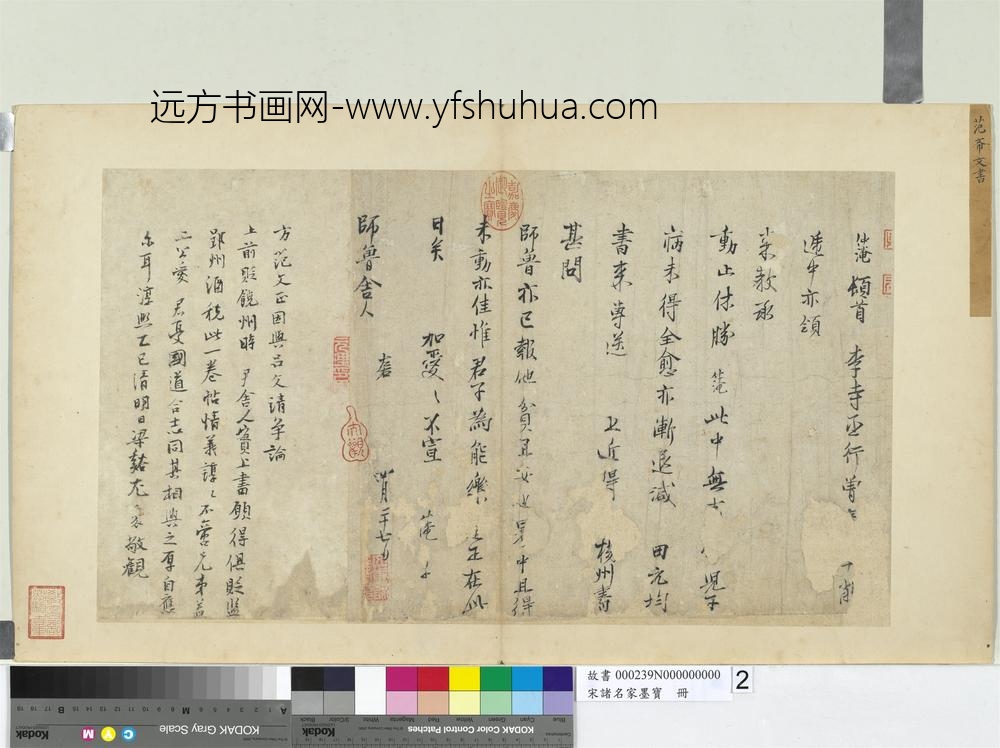 远方书画网-www.yfshuhua.com
范希文書
仲淹頓首 李寺丞行曾
遞中亦領
來教承
動止休勝 某淹此中無 兒子
病未得全愈亦漸退減 田元均
書來專送 上近得 揚州書
甚問
師魯亦已報他貧且安也 中且得
未動亦佳惟君子為能樂 正在此
日矣 加愛 不宣 淹
師魯舍人
四月二十七日
嘉慶御覽之寶
方范文正因與呂文靖爭論
上前貶饒州時尹舍人實上書願得俱貶監
郢州酒稅此一卷帖情義諄諄不啻兄弟蓋
二公愛君憂國道合志同其相與之厚自應
尔耳淳熙乙巳清明日梁谿尤袤敬觀
故書 000239N000000000
宋諸名家墨寶 冊
2
KODAK Gray Scale
KODAK Color Control Patches
Kodak
Kodak
C
Y
M
A
M
B
Blue
Cyan
Green
Yellow
Red
Magenta
White
3/Color
Black